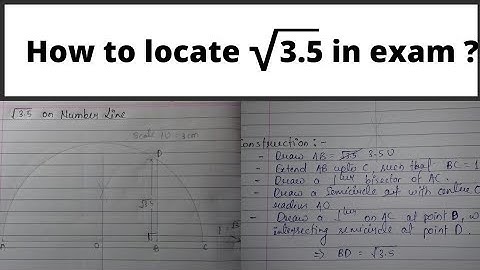 How to locate √3.5 in exam ?
√3.5 on Number Line
Scale 1U = 3cm
D
√3.5
A
O
B
C
Construction :-
- Draw AB = √3.5 3.5 U
- Extend AB upto C, such that BC = 1
- Draw a ⊥er bisector of AC.
- Draw a Semicircle with centre O
radius AO
- Draw a ⊥er on AC at point B, w
intersecting semicircle at point D.
⇒ BD = √3.5